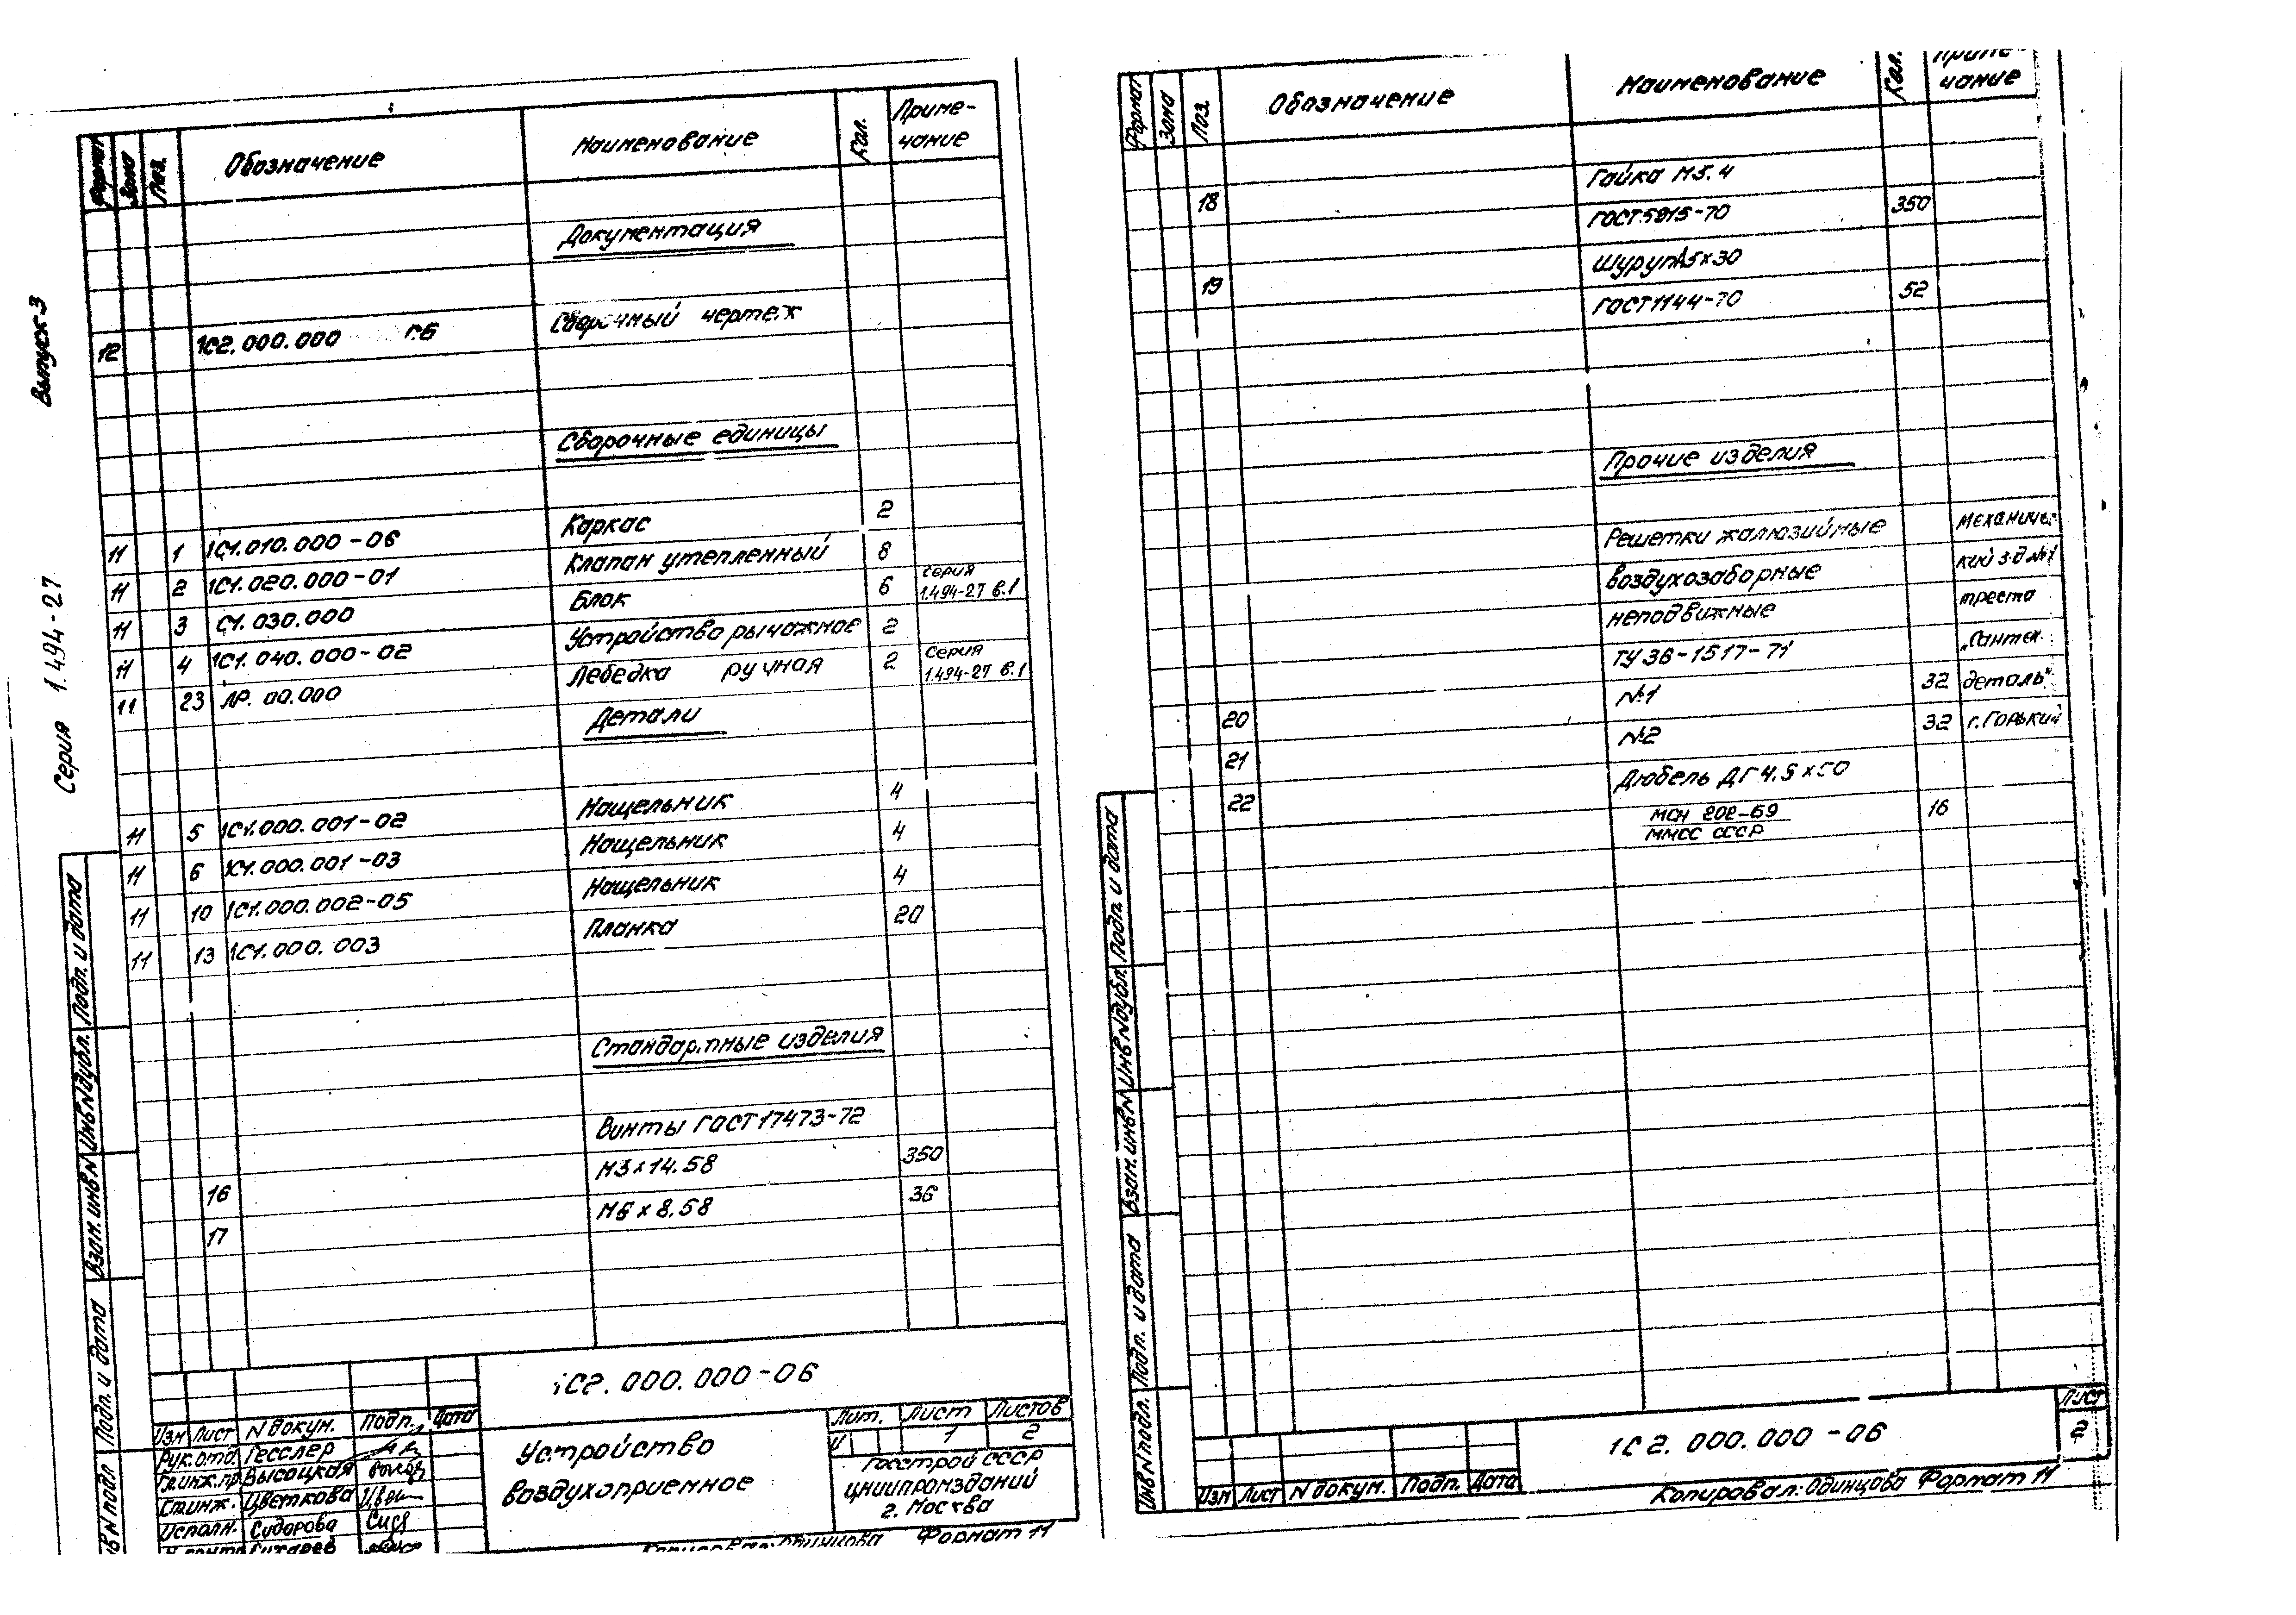 Выпуск 3
Серия 1.494-27
Формат Зона Поз. Обозначение Наименование Кол. Приме-
чание
Документация
12 1С2.000.000 Сборочный чертеж
Сборочные единицы
11 1 1С1.010.000-06 Каркас 2
11 2 1С1.020.000-01 Клапан утепленный 8
11 3 С1.030.000 Блок 6 серия
1.494-27 в.1
11 4 1С1.040.000-02 Устройство рычажное 2
11 23 ЛР.00.000 Лебедка ручная 2 серия
1.494-27 в.1
Детали
11 5 1С1.000.001-02 Нащельник 4
11 6 1С1.000.001-03 Нащельник 4
11 10 1С1.000.002-05 Нащельник 4
11 13 1С1.000.003 Планка 20
Стандартные изделия
Винты ГОСТ 17473-72
16 М5х14.58 350
17 М6х8.58 36
Подп. и дата
Инв.N дубл.
Взам.инв.N
Подп. и дата
N подл
1С2.000.000-06
Изм Лист N докум. Подп. Дата
Рук.отд. Гесслер
Гл.инж.пр. Высоцкая
Ст.инж. Цветкова
Исполн. Сидорова
Устройство
воздухоприемное
Лит. Лист Листов
И 1 2
Госстрой СССР
ЦНИИпромзданий
г. Москва
Копировал: Одинцова Формат 11
Формат Зона Поз. Обозначение Наименование Кол. Приме-
чание
Гайка М5.4
18 ГОСТ 5915-70 350
Шуруп А5х30
19 ГОСТ 1144-70 52
Прочие изделия
Решетки жалюзийные механичес-
воздухозаборные кий з-д №1
неподвижные треста
ТУ 36-1517-71 „Сантех
20 №1 32 деталь"
21 №2 32 г. Горький
Дюбель ДГ 4.5х50
22 МСН 202-69 16
ММСС СССР
Подп. и дата
Инв.N дубл.
Взам.инв.N
Подп. и дата
Инв.N подл.
1С2.000.000-06
Лист
2
Изм Лист N докум. Подп. Дата
Копировал: Одинцова Формат 11